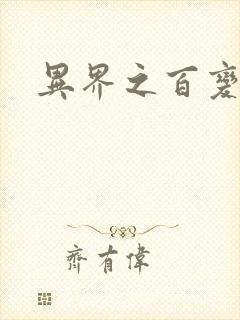 異界之百變
齊有偉